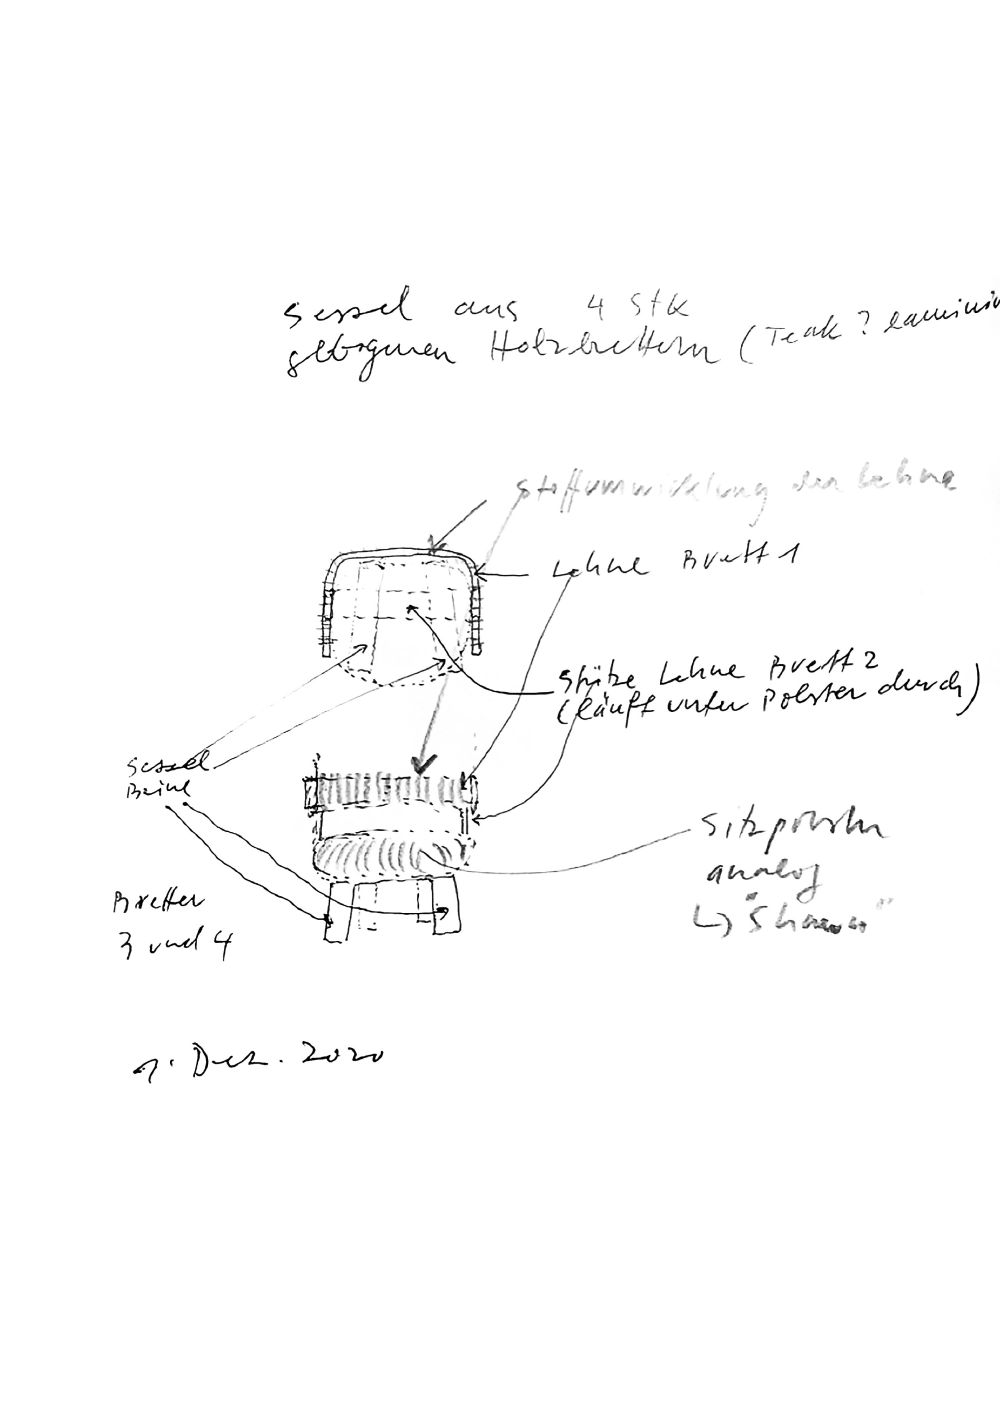 Sessel aus 4 Stk
gebogenen Holzbrettern (Teak? laminie
Stoffumwicklung der Lehne
Lehne Brett 1
Stütze Lehne Brett 2
(läuft unter Polster durch)
Sessel
Beine
Sitzpolster
analog
↳ "
Bretter
3 und 4
1. Dez. 2020